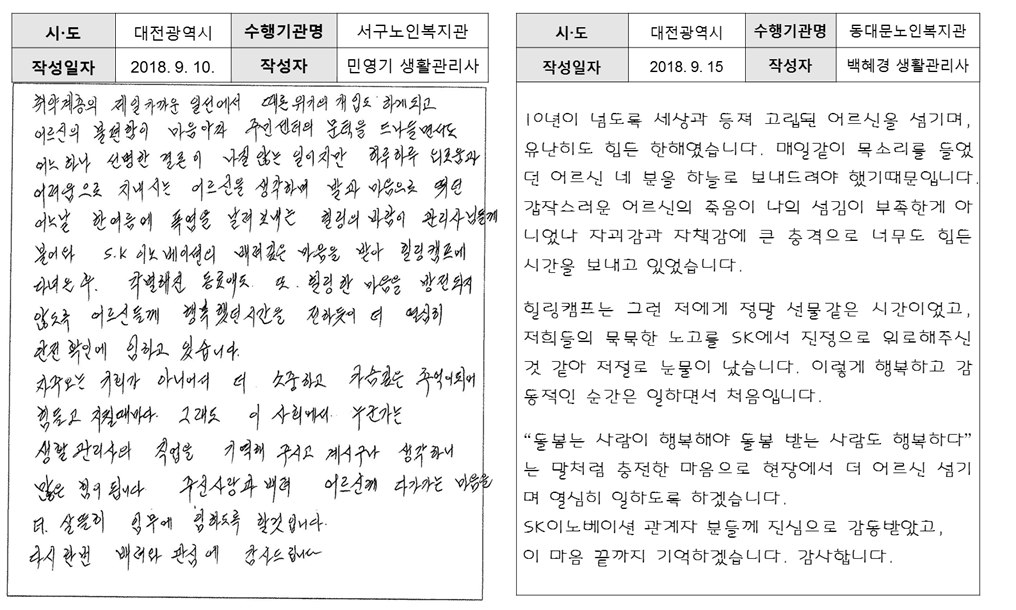 시·도 대전광역시 수행기관명 서구노인복지관
작성일자 2018. 9. 10. 작성자 민영기 생활관리사
취약계층의 제일 가까운 일선에서 때론 위치의 개입도 하게되고
어르신의 불편함이 마음아파 주민센터의 문턱을 드나들면서도
어느하나 선명한 결론이 나질 않는 일이지만 하루하루 외로움과
어려움으로 지내시는 어르신을 생각하며 발과 마음으로 뛰던
어느날 한여름에 폭염을 날려보내는 힐링의 바람이 관리사님들께
불어와 S.K 이노베이션의 배려깊은 마음을 받아 힐링캠프에
다녀온 후. 각별해진 동료애도. 또. 힐링한 마음을 방전되지
않도록 어르신들께 행복했던시간을 전하듯이 더 열심히
안전확인에 임하고 있습니다.
자주오는 기회가 아니어서 더 소중하고 가슴깊은 추억이되어
힘들고 지칠때마다. 그래도 이 사회에서. 누군가는
생활관리사의 직업을 기억해 주시고 계시구나 생각하니
많은 힘이 됩니다 주신사랑과 배려 어르신께 다가가는 마음을
더. 살뜰히 임무에 임하도록 할것입니다.
다시한번 배려와 관심에 감사드립니다
시·도 대전광역시 수행기관명 동대문노인복지관
작성일자 2018. 9. 15 작성자 백혜경 생활관리사
10년이 넘도록 세상과 등져 고립된 어르신을 섬기며,
유난히도 힘든 한해였습니다. 매일같이 목소리를 들었
던 어르신 네 분을 하늘로 보내드려야 했기때문입니다.
갑작스러운 어르신의 죽음이 나의 섬김이 부족한게 아
니었나 자괴감과 자책감에 큰 충격으로 너무도 힘든
시간을 보내고 있었습니다.
힐링캠프는 그런 저에게 정말 선물같은 시간이었고,
저희들의 묵묵한 노고를 SK에서 진정으로 위로해주신
것 같아 저절로 눈물이 났습니다. 이렇게 행복하고 감
동적인 순간은 일하면서 처음입니다.
“돌봄는 사람이 행복해야 돌봄 받는 사람도 행복하다”
는 말처럼 충전한 마음으로 현장에서 더 어르신 섬기
며 열심히 일하도록 하겠습니다.
SK이노베이션 관계자 분들께 진심으로 감동받았고,
이 마음 끝까지 기억하겠습니다. 감사합니다.